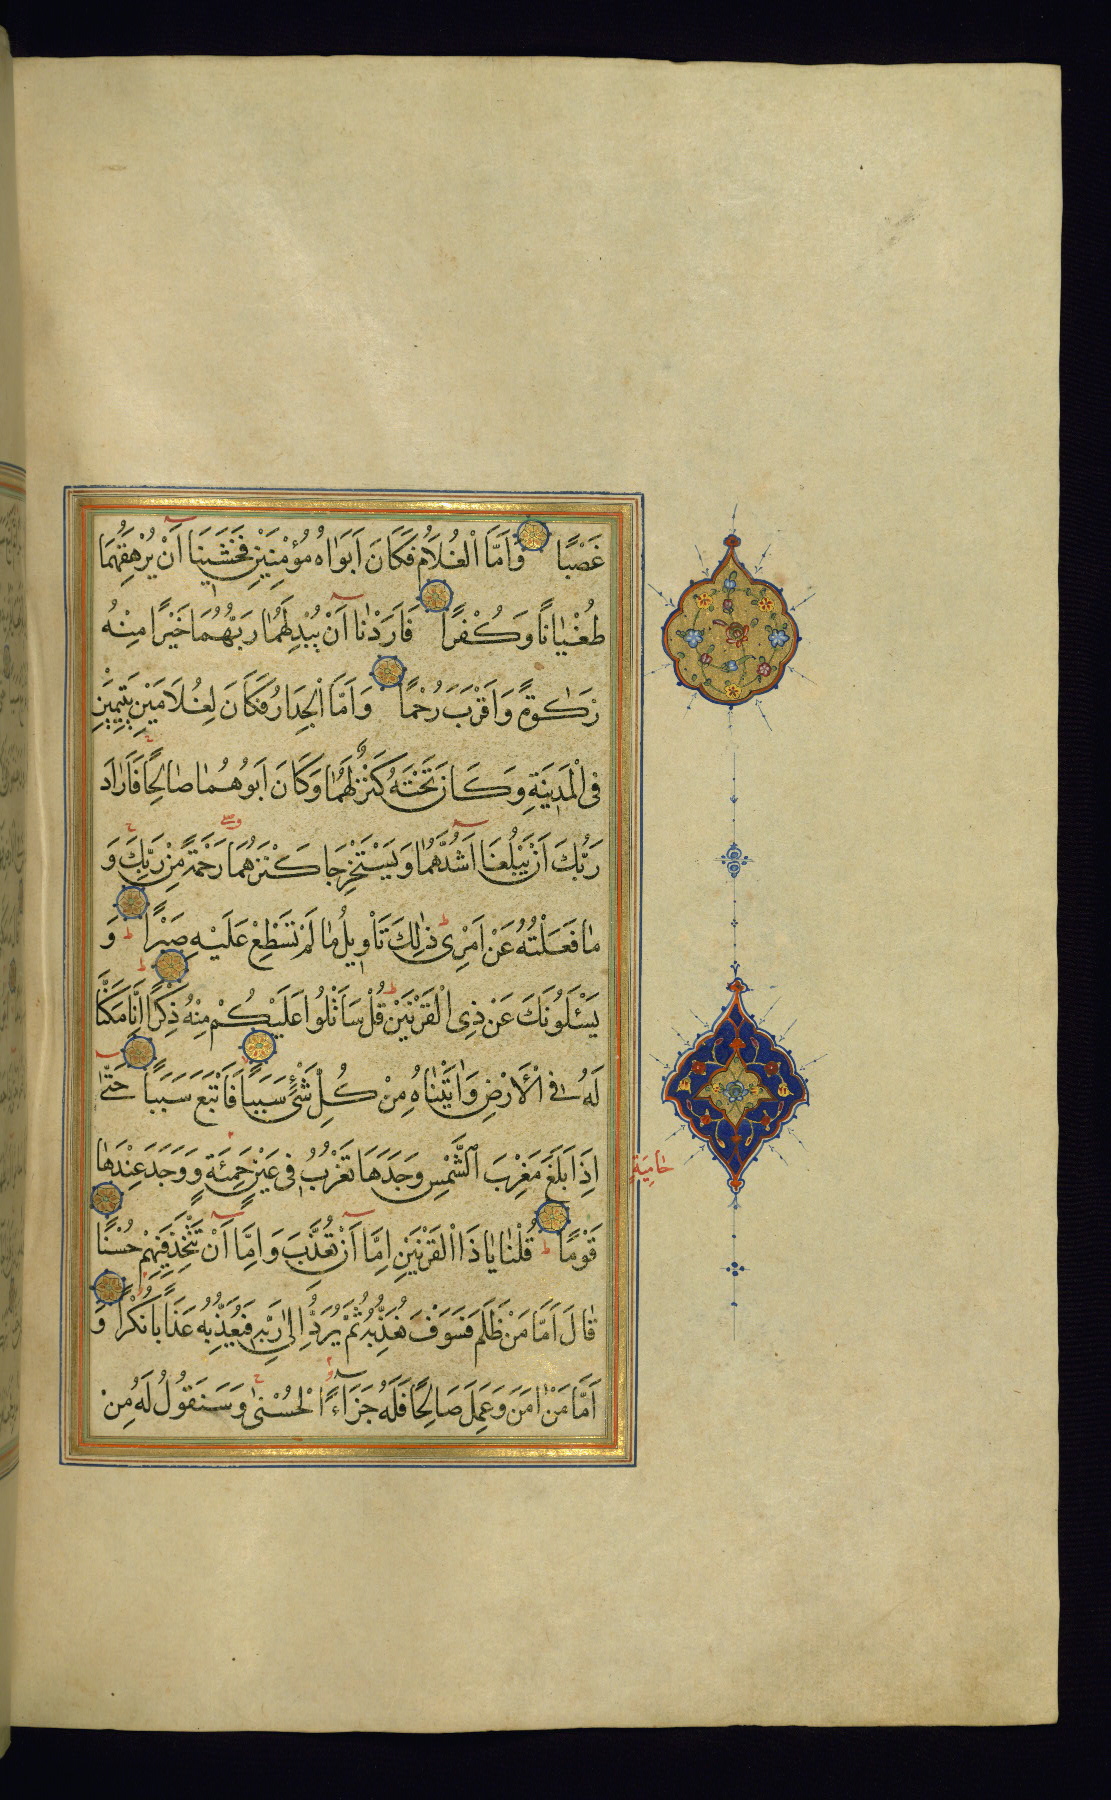 غَصْبًا وَاَمَّا الْغُلَامُ فَكَانَ اَبَوَاهُ مُؤْمِنَيْنِ فَخَشٖينَا اَنْ يُرْهِقَهُمَا
طُغْيَانًا وَكُفْرًا فَاَرَدْنَا اَنْ يُبْدِلَهُمَا رَبُّهُمَا خَيْرًا مِنْهُ
زَكٰوةً وَاَقْرَبَ رُحْمًا وَاَمَّا الْجِدَارُ فَكَانَ لِغُلَامَيْنِ يَتٖيمَيْنِ
فِى الْمَدٖينَةِ وَكَانَ تَحْتَهُ كَنْزٌ لَهُمَا وَكَانَ اَبُوهُمَا صَالِحًا فَاَرَادَ
رَبُّكَ اَنْ يَبْلُغَا اَشُدَّهُمَا وَيَسْتَخْرِجَا كَنْزَهُمَا رَحْمَةً مِنْ رَبِّكَ وَ
مَا فَعَلْتُهُ عَنْ اَمْرٖى ذٰلِكَ تَأْوٖيلُ مَا لَمْ تَسْطِعْ عَلَيْهِ صَبْرًا وَ
يَسْـَٔلُونَكَ عَنْ ذِى الْقَرْنَيْنِ قُلْ سَاَتْلُوا عَلَيْكُمْ مِنْهُ ذِكْرًا اِنَّا مَكَّنَّا
لَهُ فِى الْاَرْضِ وَاٰتَيْنَاهُ مِنْ كُلِّ شَىْءٍ سَبَبًا فَاَتْبَعَ سَبَبًا حَتّٰى
اِذَا بَلَغَ مَغْرِبَ الشَّمْسِ وَجَدَهَا تَغْرُبُ فٖى عَيْنٍ حَمِئَةٍ وَوَجَدَ عِنْدَهَا
حَامِيَةٍ
قَوْمًا قُلْنَا يَا ذَا الْقَرْنَيْنِ اِمَّا اَنْ تُعَذِّبَ وَاِمَّا اَنْ تَتَّخِذَ فٖيهِمْ حُسْنًا
قَالَ اَمَّا مَنْ ظَلَمَ فَسَوْفَ نُعَذِّبُهُ ثُمَّ يُرَدُّ اِلٰى رَبِّهٖ فَيُعَذِّبُهُ عَذَابًا نُكْرًا وَ
اَمَّا مَنْ اٰمَنَ وَعَمِلَ صَالِحًا فَلَهُ جَزَاءً الْحُسْنٰى وَسَنَقُولُ لَهُ مِنْ